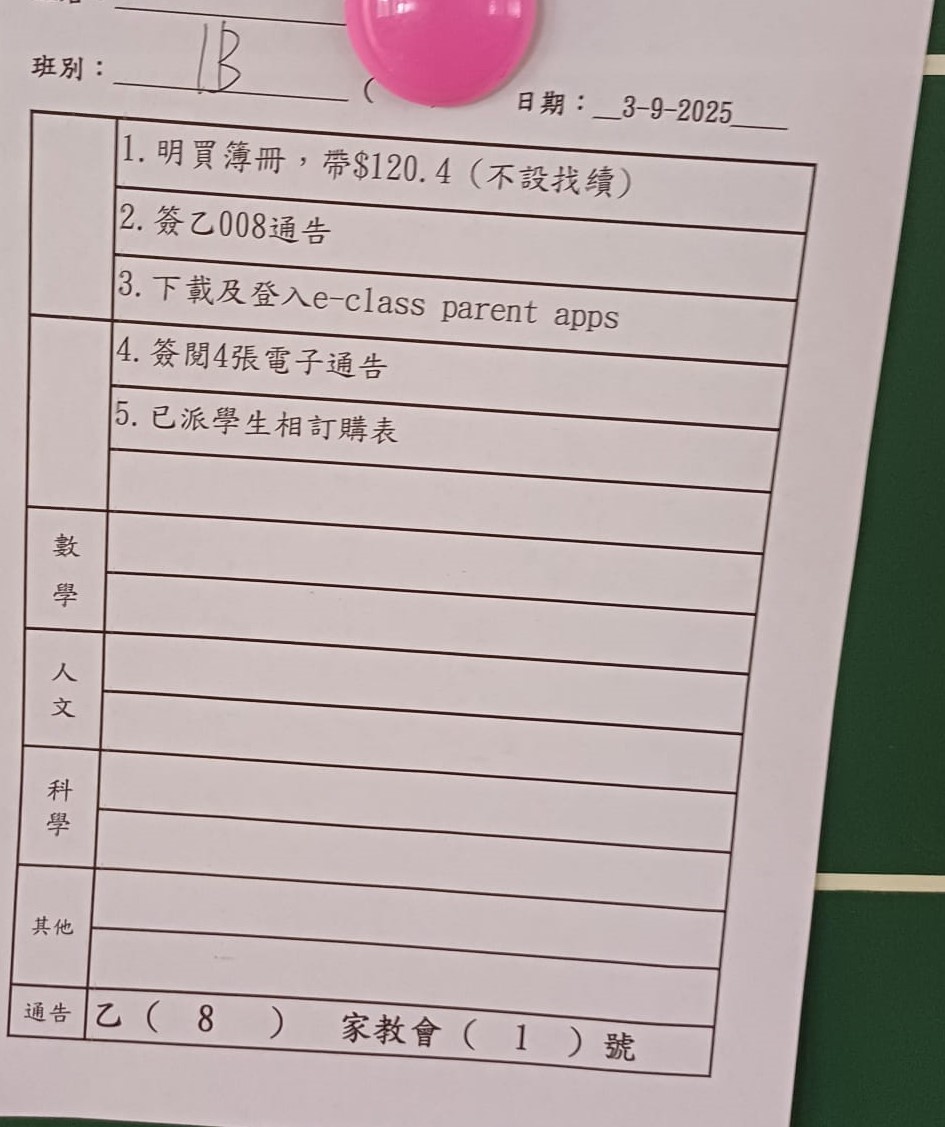 班別： 1B (
日期：__3-9-2025____
1. 明買簿冊，帶$120.4（不設找續）
2. 簽乙008通告
3. 下載及登入e-class parent apps
4. 簽閱4張電子通告
5. 已派學生相訂購表
數學
人文
科學
其他
通告 乙（ 8 ） 家教會（ 1 ）號